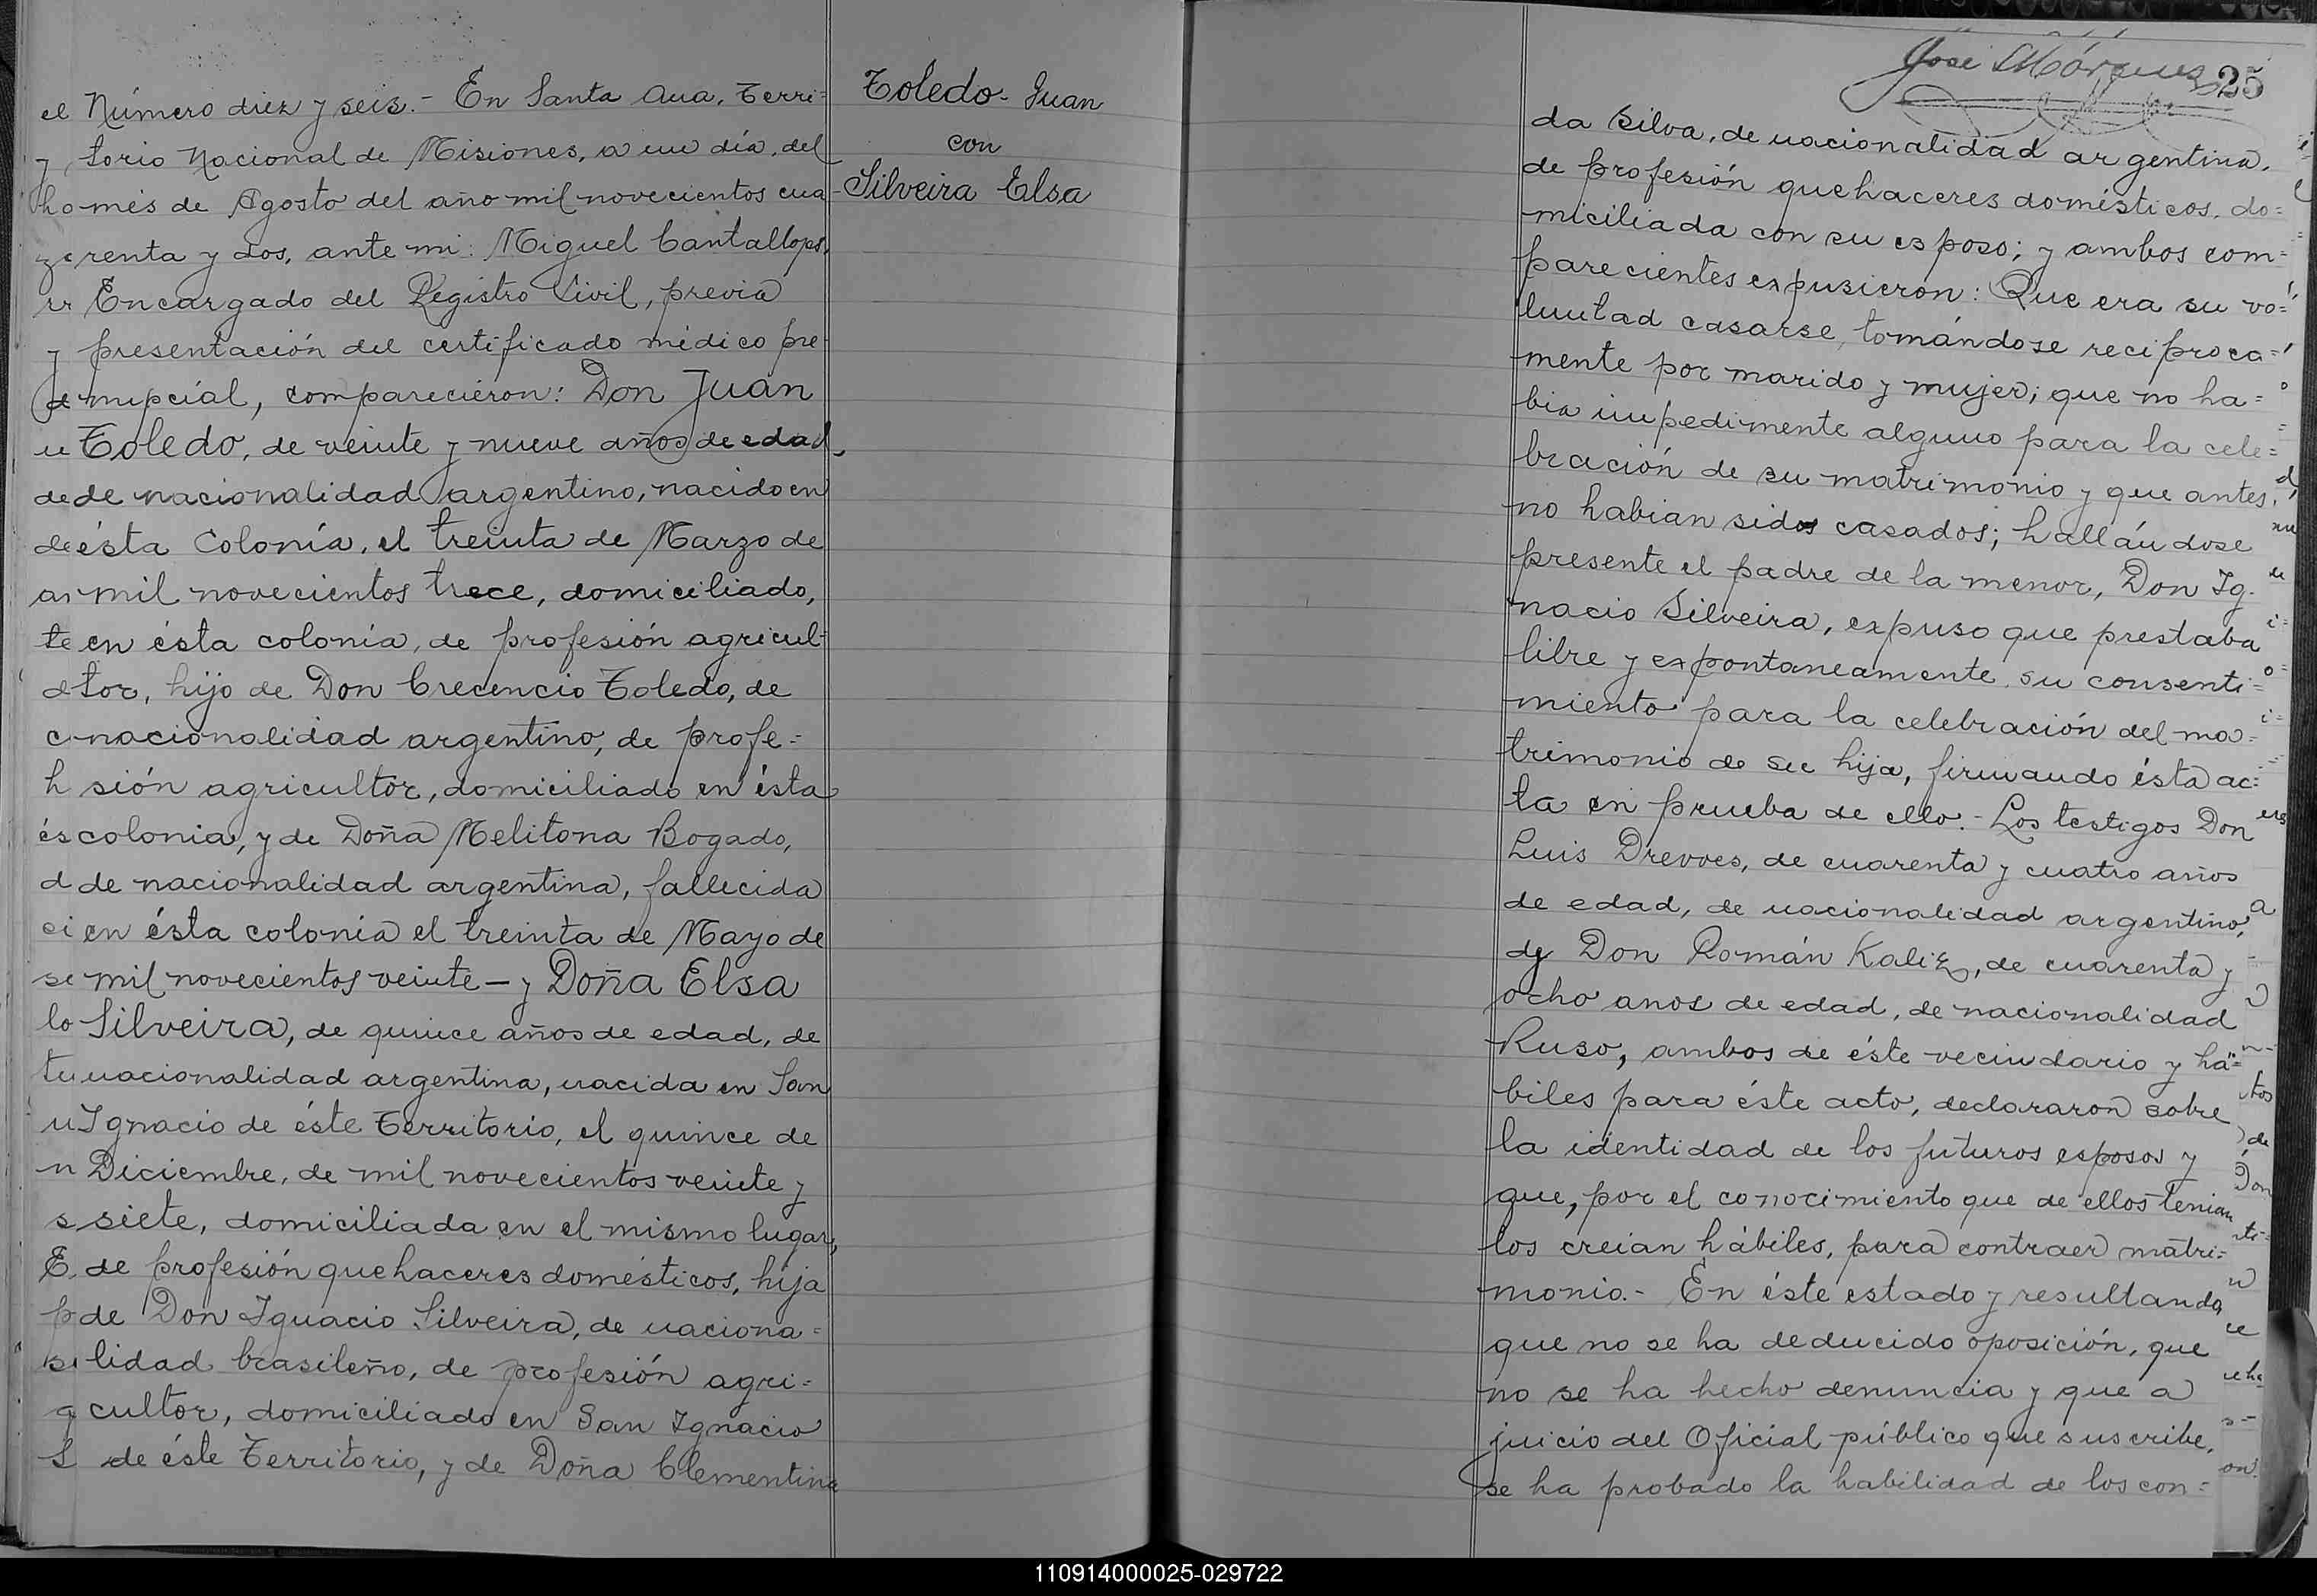 Número diez y seis.- En Santa Ana, Terri=
torio Nacional de Misiones, a un día, del
més de Agosto del año mil novecientos cua
renta y dos, ante mi: Miguel Cantallops,
Encargado del Registro Civil, previa
presentación del certificado médico pre
nupciál, comparecieron: Don Juan
Toledo, de veinte y nueve años de edad,
de nacionalidad argentino, nacido en
ésta Colonía, el treinta de Marzo de
mil novecientos trece, domiciliado,
en ésta colonía, de profesión agricul-
tor, hijo de Don Crecencio Toledo, de
nacionalidad argentino, de profe=
sión agricultor, domiciliado en ésta
colonia, y de Doña Melitona Bogado,
de nacionalidad argentina, fallecida
en ésta colonia el treinta de Mayo de
mil novecientos veinte — y Doña Elsa
Silveira, de quince años de edad, de
nacionalidad argentina, nacida en San
Ignacio de éste Territorio, el quince de
Diciembre, de mil novecientos veinte y
siete, domiciliada en el mismo lugar,
de profesión quehaceres domésticos, hija
de Don Ignacio Silveira, de naciona=
lidad brasileño, de profesión agri=
cultor, domiciliado en San Ignacio
de éste Territorio, y de Doña Clementina
Toledo- Juan
con
Silveira Elsa
José
25
da Silva, de nacionalidad argentina,
de profesión quehaceres domésticos, do=
miciliada con su esposo; y ambos com=
parecientes expusieron: Que era su vo=
luntad casarse, tomándose reciproca=
mente por marido y mujer; que no ha=
bia impedimente alguno para la cele=
bración de su matrimonio y que antes,
no habian sidos casados; hallándose
presente el padre de la menor, Don Ig-
nacio Silveira, expuso que prestaba
libre y expontaneamente su consenti=
miento para la celebración del ma=
trimonio de su hija, firmando ésta ac=
ta en prueba de ello.- Los testigos Don
Luis Drevves, de cuarenta y cuatro años
de edad, de nacionalidad argentino,
y Don Román Kaliz, de cuarenta y
ocho anos de edad, de nacionalidad
Ruso, ambos de éste vecindario y há=
biles para éste acto, declararon sobre
la idéntidad de los futuros esposos y
que, por el conocimiento que de ellos tenian
los creian hábiles, para contraer matri=
monio.- En éste estado y resultando,
que no se ha deducido oposición, que
no se ha hecho denuncia y que a
juicio del Oficial público que suscribe,
se ha probado la habilidad de los con=
110914000025-029722